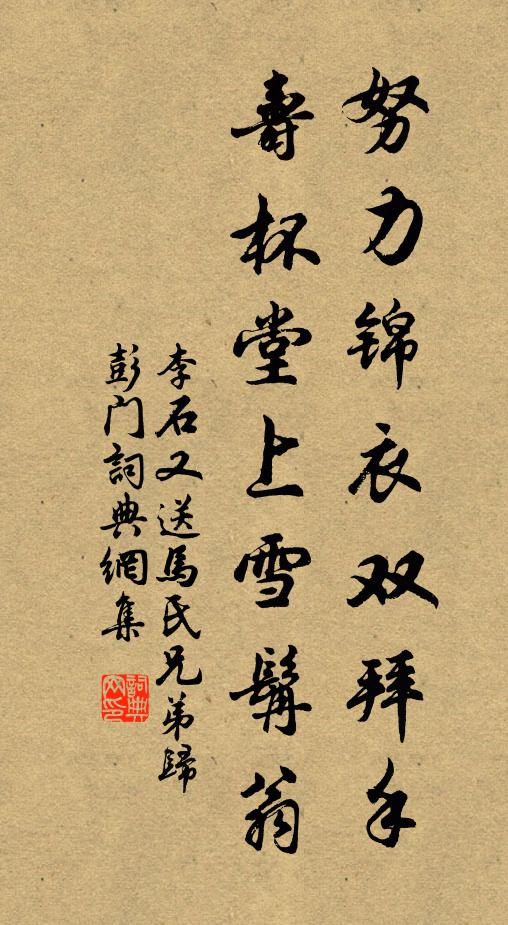 努力锦衣双拜手
壽杯堂上雪髯翁
李石又送馬氏兄弟歸
彭门詞典網集
詞典